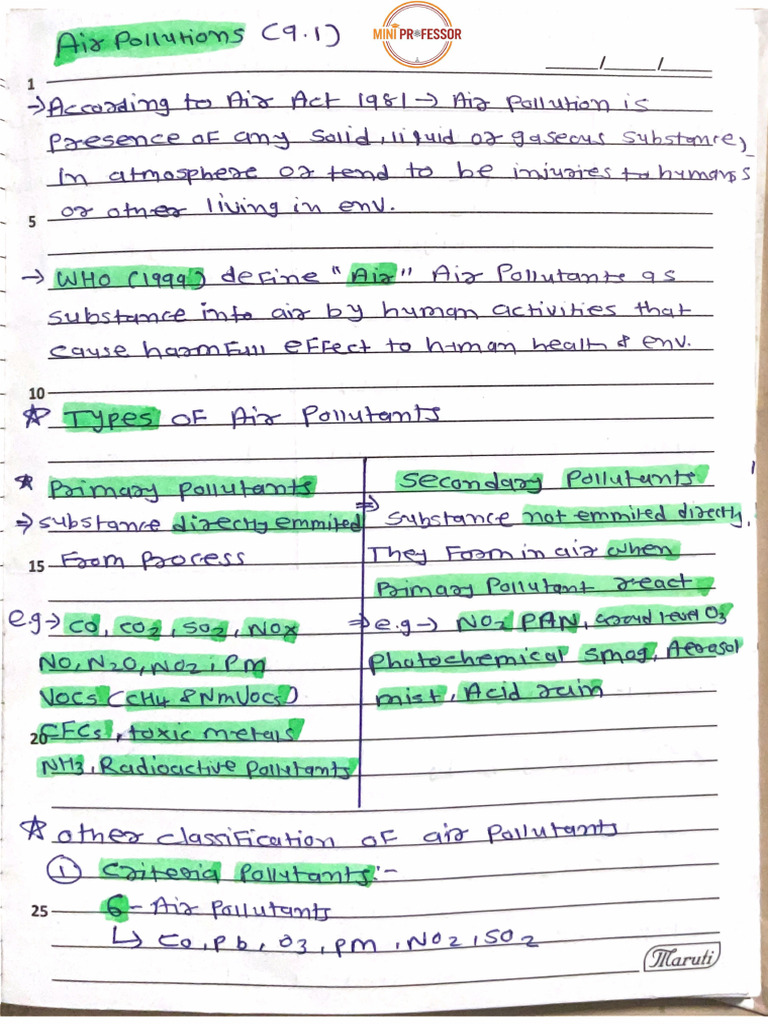 Air Pollutions (9.1)
MINI PROFESSOR
__/__/__
1
→ According to Air Act 1981 → Air Pollution is
presence of any solid, liquid or gaseous substance,
in atmosphere or tend to be injuries to humans
5
or other living in env.
→ WHO (1999) define "Air" Air Pollutants as
substance into air by human activities that
cause harmfull effect to human health & env.
10
☆ Types of Air Pollutants
* Primary pollutants
⇒ substance directly emmited
15
From Process
e.g → CO, CO2, SO2, NOx
NO, N2O, NO2, PM
VOCs (CH4 & NmVOCs)
20
CFCs, toxic metals
NH3, Radioactive Pollutants
Secondary Pollutants
⇒ Substance not emmited directly,
They Form in air when
primary Pollutant react
⇒ e.g → NO2 PAN, Ground level O3
Photochemical smog, Aerosol
mist, Acid rain
☆ other classification of air pollutants
① Criteria Pollutants:-
25
6 - Air Pollutants
↳ CO, Pb, O3, PM, NO2, SO2
Maruti